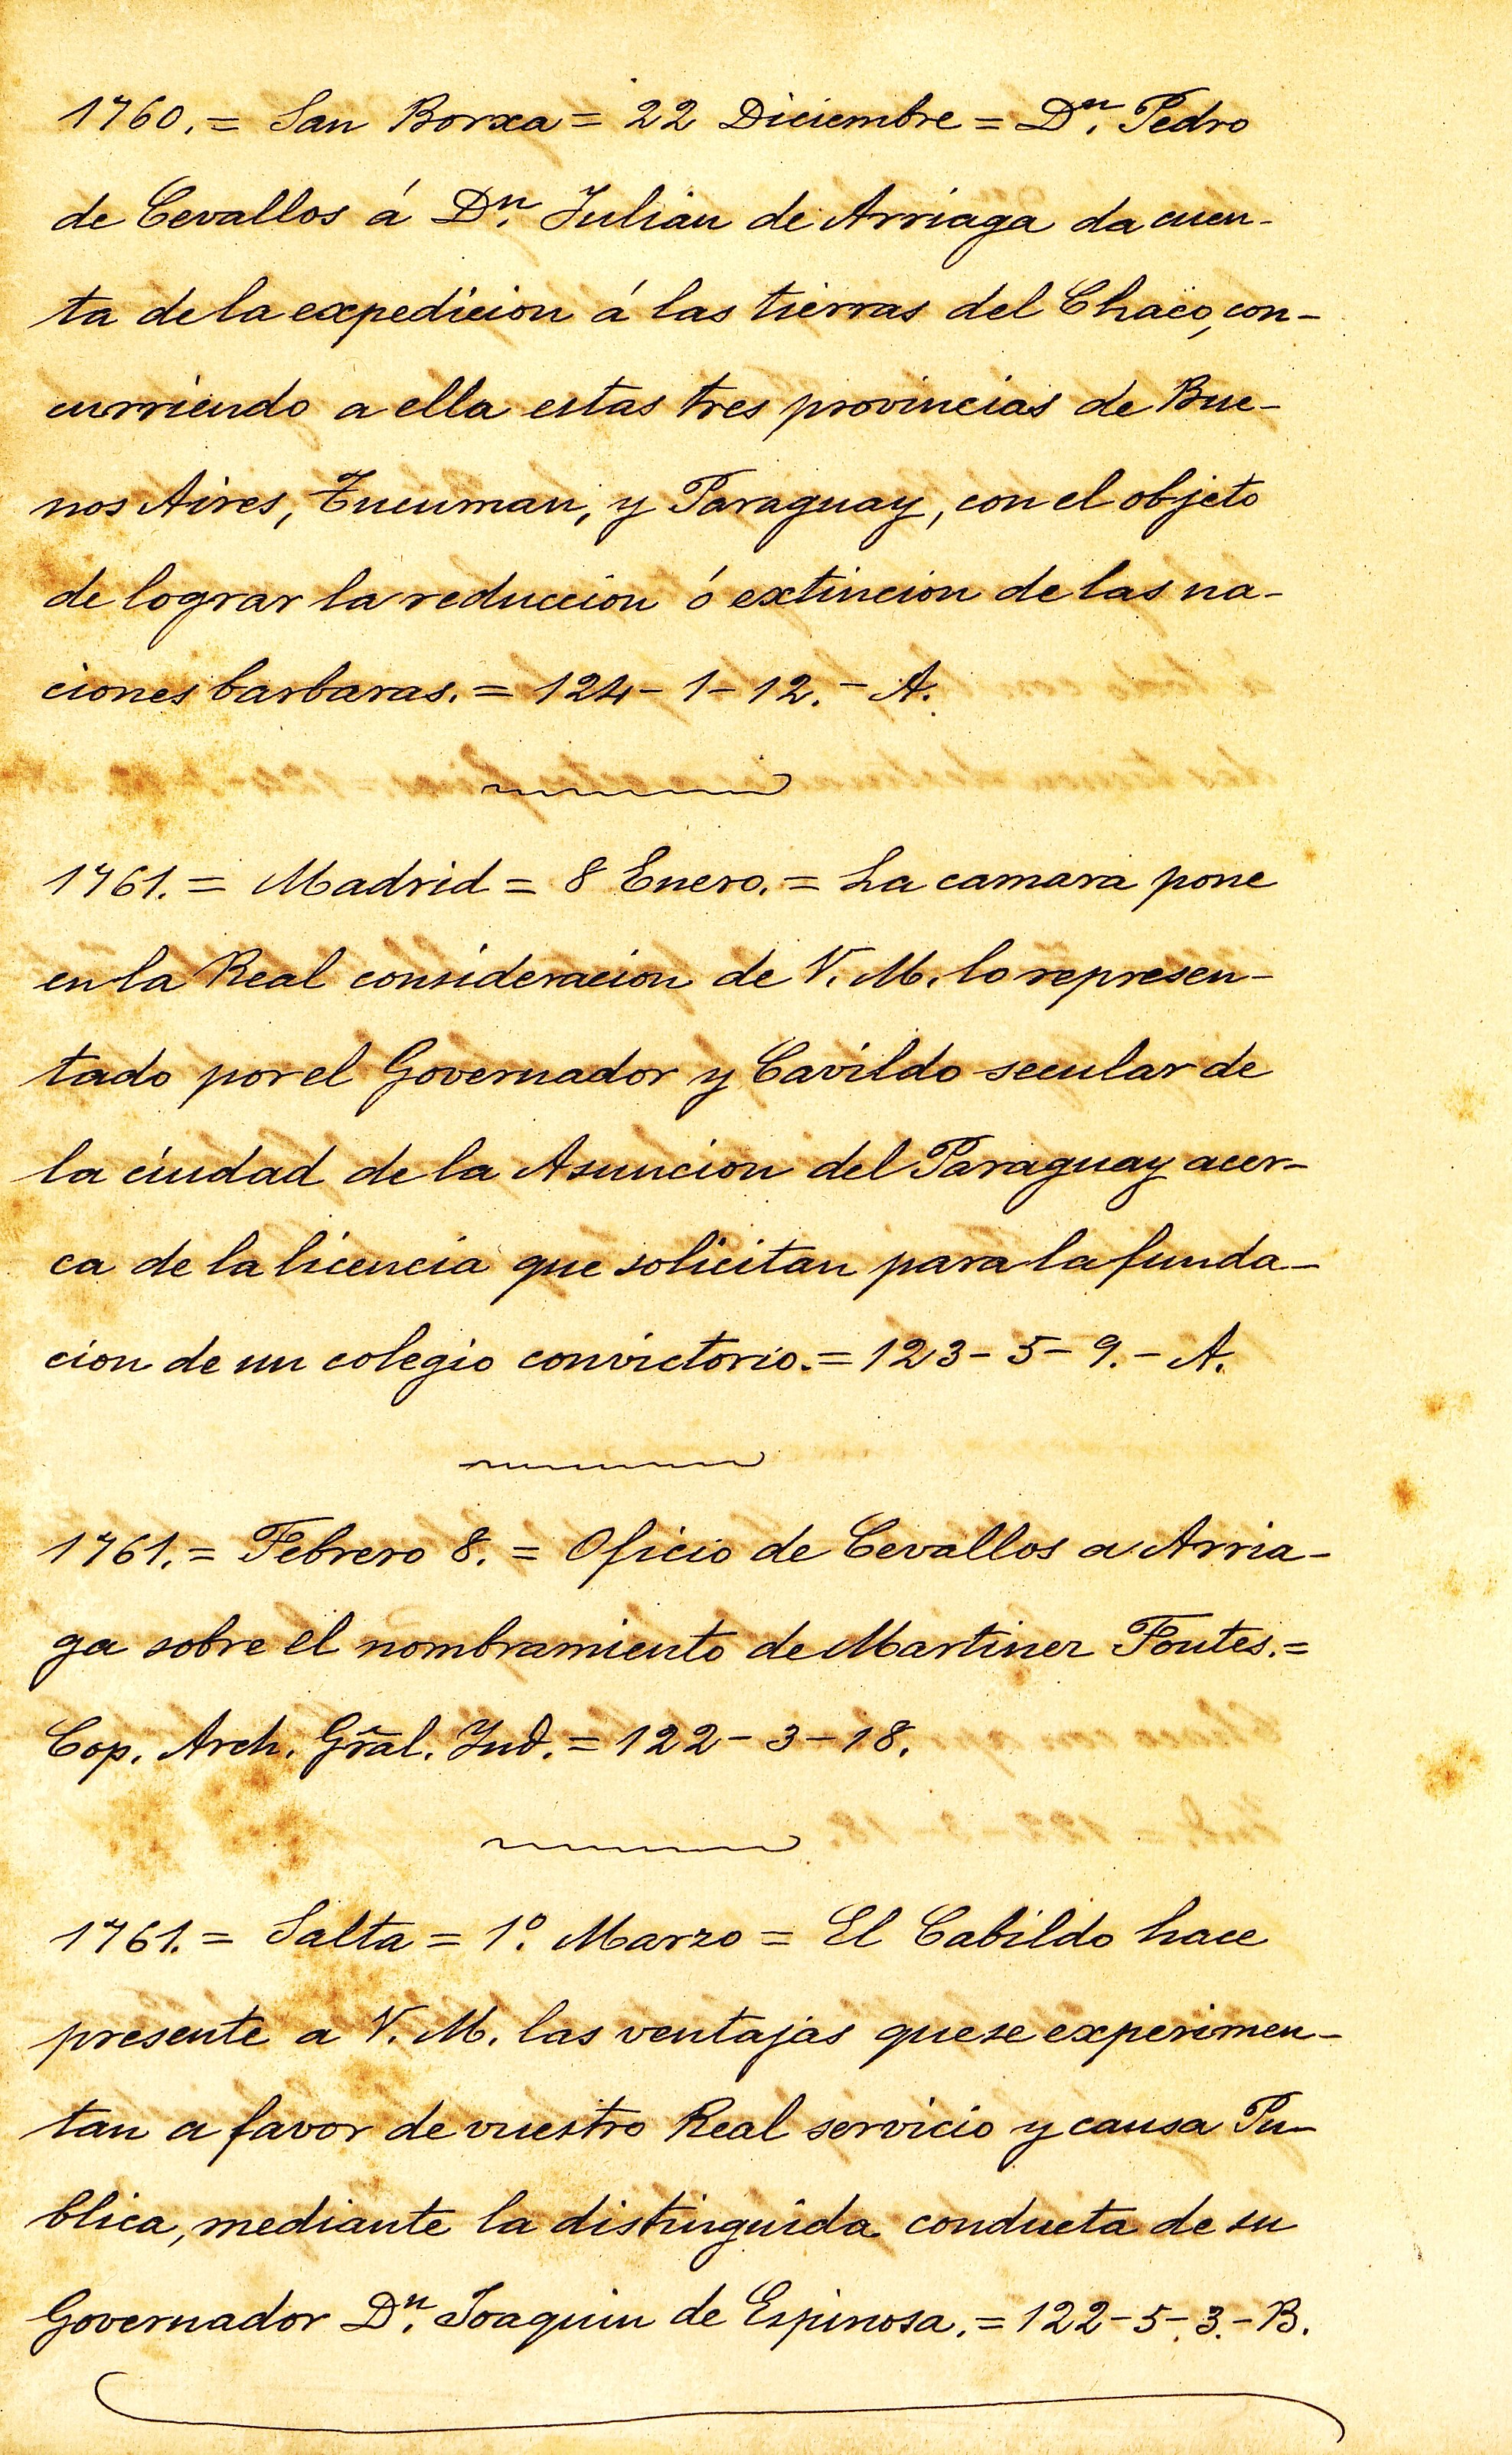 1760. = San Borxa = 22 Diciembre = Dⁿ. Pedro
de Cevallos á Dⁿ. Julian de Arriaga da cuen-
ta de la expedicion á las tierras del Chaco, con-
curriendo a ella estas tres provincias de Bue-
nos Aires, Tucuman, y Paraguay, con el objeto
de lograr la reduccion ó extincion de las na-
ciones barbaras. = 124-1-12. - A.
1761. = Madrid = 8 Enero. = La camara pone
en la Real consideracion de V. M. lo represen-
tado por el Governador y Cavildo secular de
la ciudad de la Asuncion del Paraguay acer-
ca de la licencia que solicitan para la funda-
cion de un colegio convictorio. = 123-5-9. - A.
1761. = Febrero 8. = Oficio de Cevallos a Arria-
ga sobre el nombramiento de Martinez Fontes. =
Cop. Arch. Gr̃al. Ind. = 122-3-18.
1761. = Salta = 1º. Marzo = El Cabildo hace
presente a V. M. las ventajas que se experimen-
tan a favor de vuestro Real servicio y causa Pu-
blica, mediante la distinguida conducta de su
Governador Dⁿ. Joaquin de Espinosa. = 122-5-3.-B.